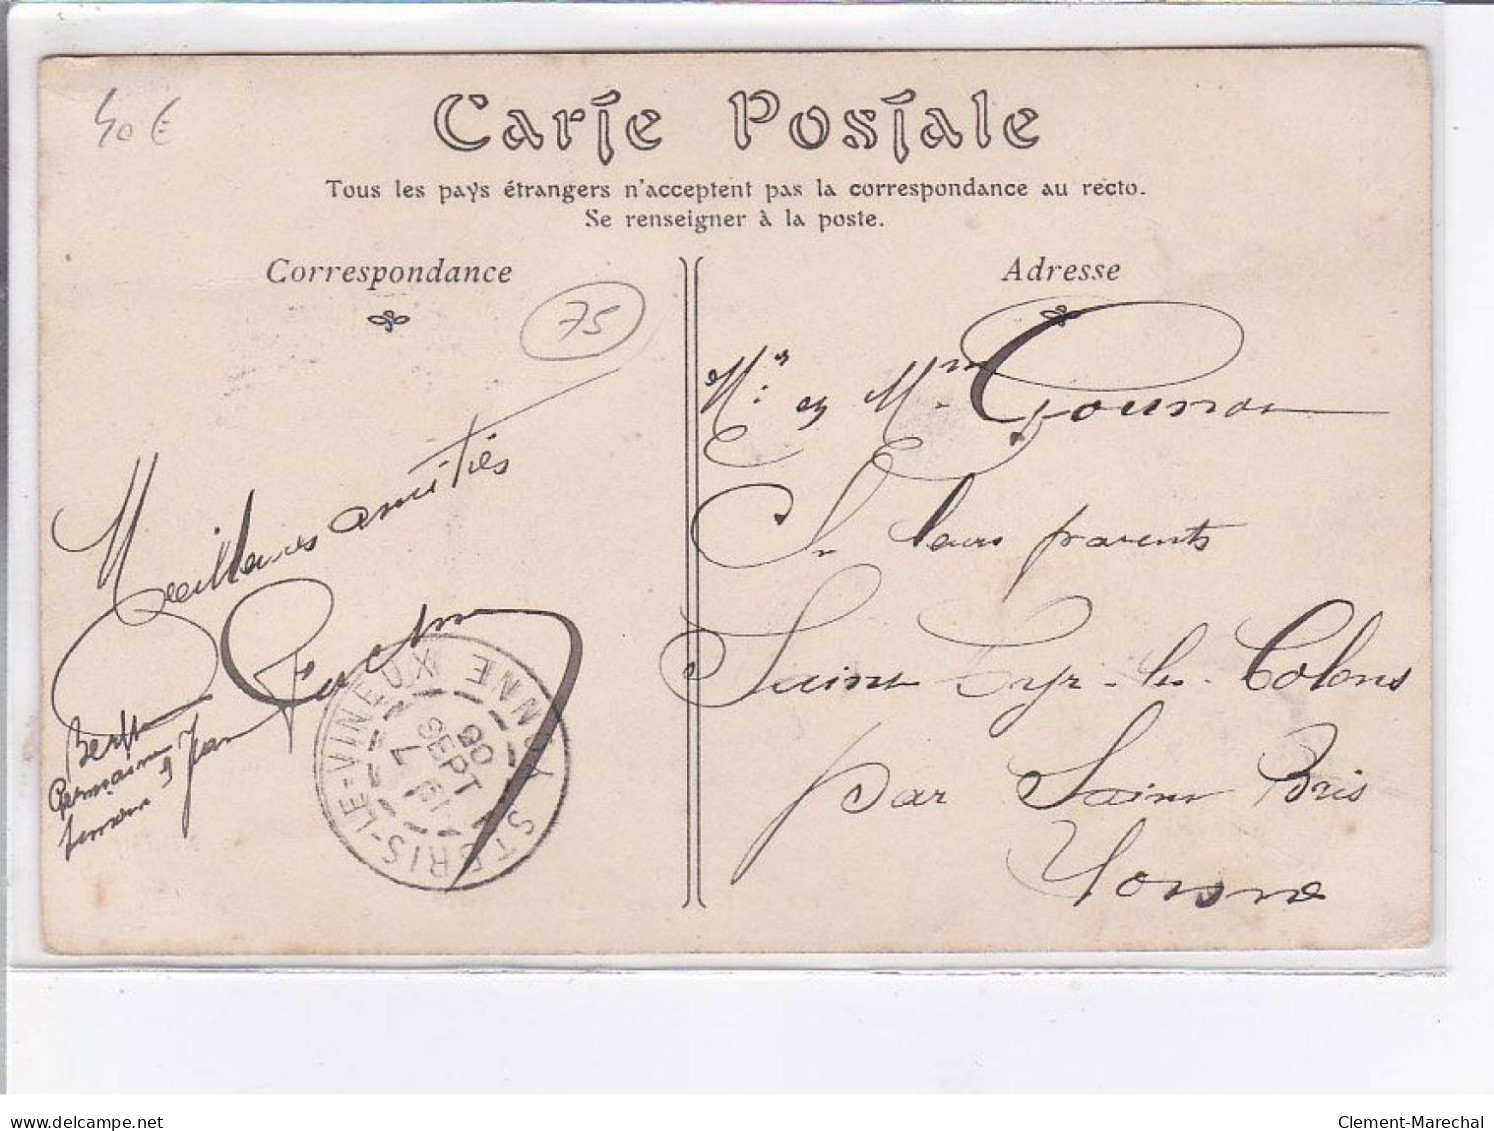 40€
Carte Postale
Tous les pays étrangers n'acceptent pas la correspondance au recto.
Se renseigner à la poste.
Correspondance
75
Meilleures amitiés
Berthe
Germaine
et Jean
ST BRIS-LE-VINEUX YONNE
7
SEPT
Adresse
Mr et Mme
Ch leurs parents
Saint Cyr-les-Colons
par Saint Bris
Yonne
delcampe.net
Clement-Marechal